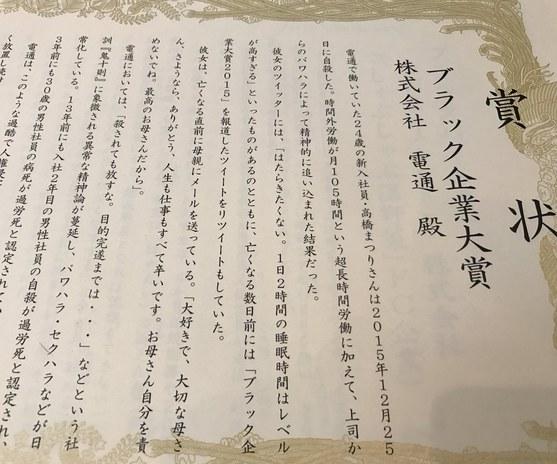 賞状
ブラック企業大賞
株式会社 電通 殿
電通で働いていた24歳の新入社員・高橋まつりさんは2015年12月25
日に自殺した。時間外労働が月105時間という超長時間労働に加えて、上司か
らのパワハラによって精神的に追い込まれた結果だった。
彼女のツイッターには、「はたらきたくない。1日2時間の睡眠時間はレベル
が高すぎる」といったものがあるのとともに、亡くなる数日前には「ブラック企
業大賞2015」を報道したツイートをリツイートもしていた。
彼女は、亡くなる直前に母親にメールを送っている。「大好きで、大切な母さ
ん。さようなら。ありがとう。人生も仕事もすべて辛いです。お母さん自分を責
めないでね。最高のお母さんだから」。
電通においては、「殺されても放すな。目的完遂までは・・・」などという社
訓『鬼十則』に象徴される異常な精神論が蔓延し、パワハラ・セクハラなどが日
常化している。13年前にも入社2年目の男性社員の自殺が過労死と認定され、
3年前にも30歳の男性社員の病死が過労死と認定されてい
電通は、このような過酷で人権侵
く放置し続け